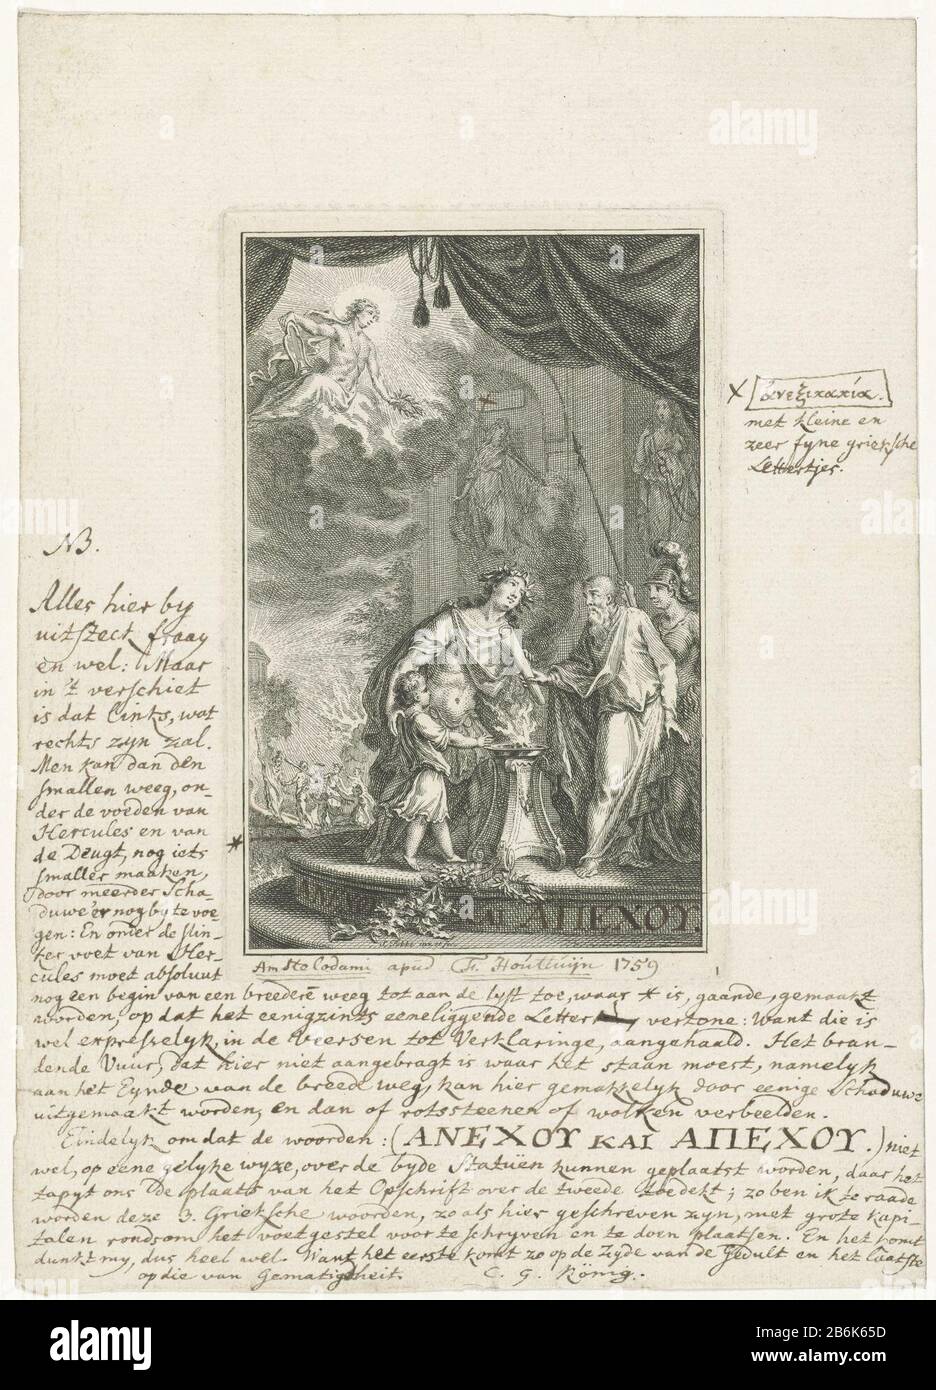 × ἀνεξικακία.
met kleine en
zeer fyne grieksche
Lettertjes.
NB.
Alles hier by
uitsteck fraay
en wel: Maar
in 't verschiet
is dat links, wat
rechts zyn zal.
Men kan dan den
smallen weeg, on-
der de voeden van
Hercules en van
de Deugt, nog iets
smaller maaken,
door meerder Scha-
duwe'er nog by te voe-
gen: En onder de slin-
ker voet van Her-
cules moet absoluut
nog een begin van een breeder weeg tot aan de lyst toe, waar * is, gaande, gemaakt
worden, op dat het eenigzints eeneliggende Letter vertone: Want die is
wel expresselyk, in de veersen tot Verklaringe, aangehaald. Het bran-
dende Vuur, dat hier niet aangebragt is waar het staan moest, namelyk
aan het Eynde van de breede weg, kan hier gemakkelyk door eenige Schaduwe
uitgemaakt worden, en dan of rotssteenen of wolken verbeelden.
Eindelyk om dat de woorden: (ΑΝΕΧΟΥ ΚΑΙ ΑΠΕΧΟΥ.) niet
wel, op eene gelyke wyze, over de byde Statuën kunnen geplaatst worden, daar het
tapyt ons de plaats van het Opschrift over de tweede toedekt; zo ben ik te raade
worden deze 3. Grieksche woorden, zo als hier geschreven zyn, met grote kapi-
talen rondsom het voetgestel voor te schryven en te doen plaatsen. En het komt
dunkt my, dus heel wel. Want het eerste komt zo op de Zyde van de Gedult en het laatste
op die van Gematigdheit. C. G. König.
ΚΑΙ ΑΠΕΧΟΥ.
Amstelodami apud F. Houttuijn 1759
alamy
Image ID: 2B6K65D
www.alamy.com